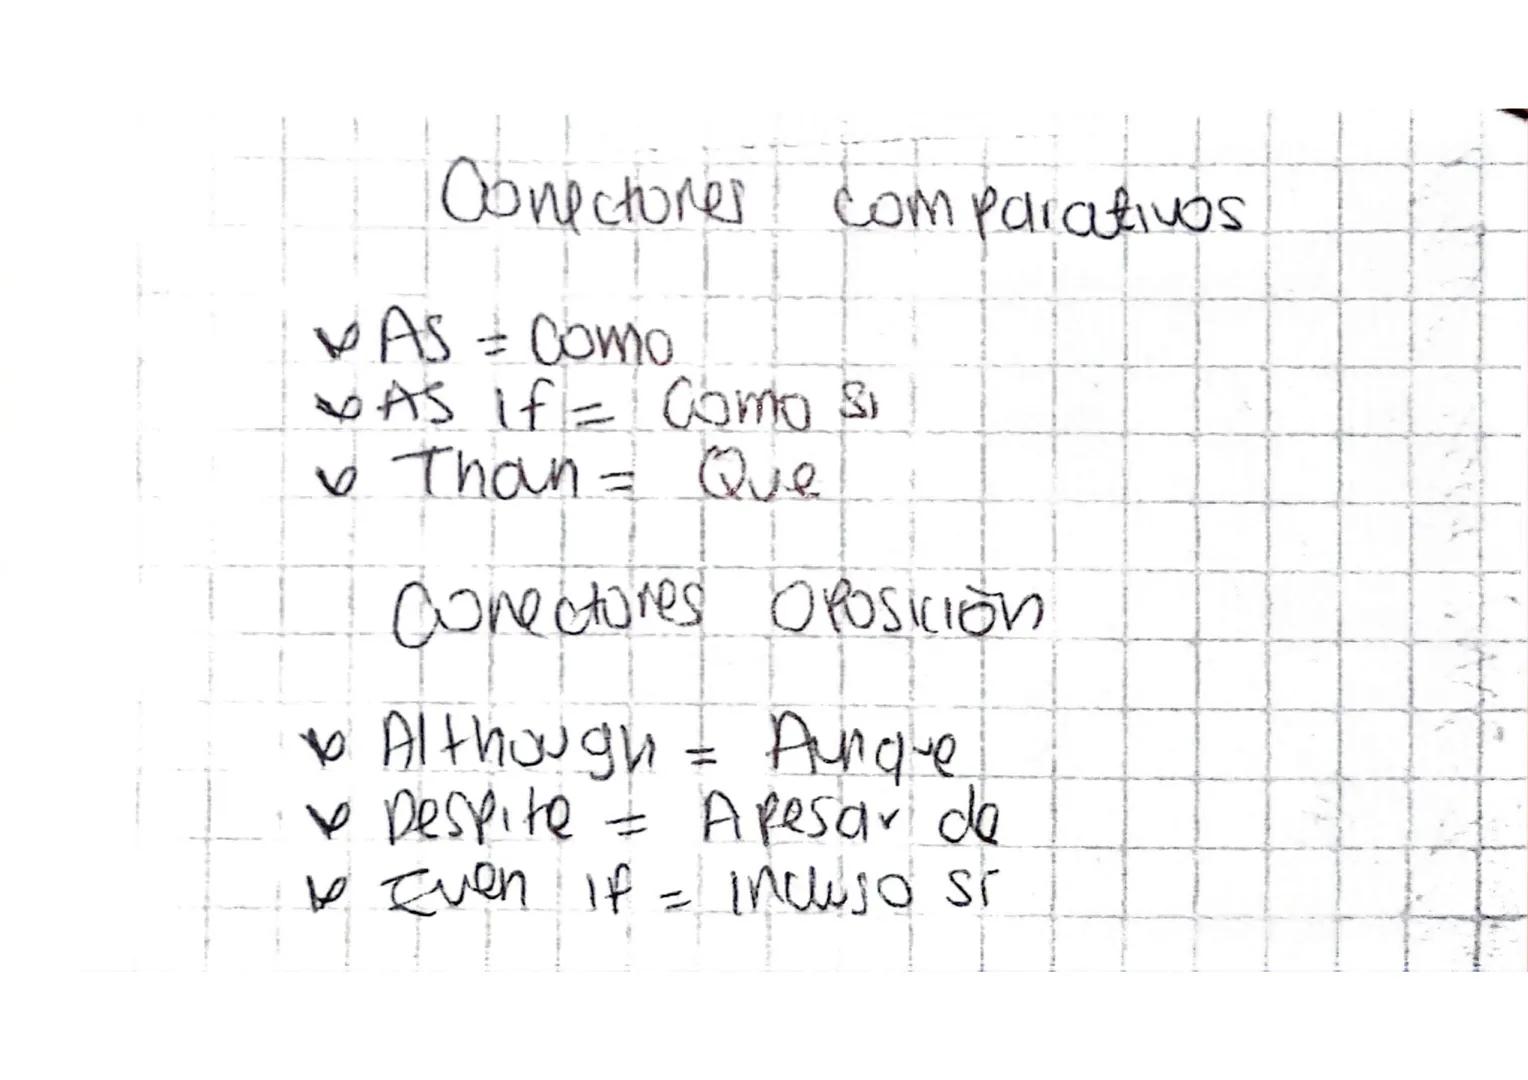 Conectores comparativos
As = Como
As if = Como si
Than = Que
Conectores Oposición
Although = Aunque
Despite = Apesar de
Even if = incluso si